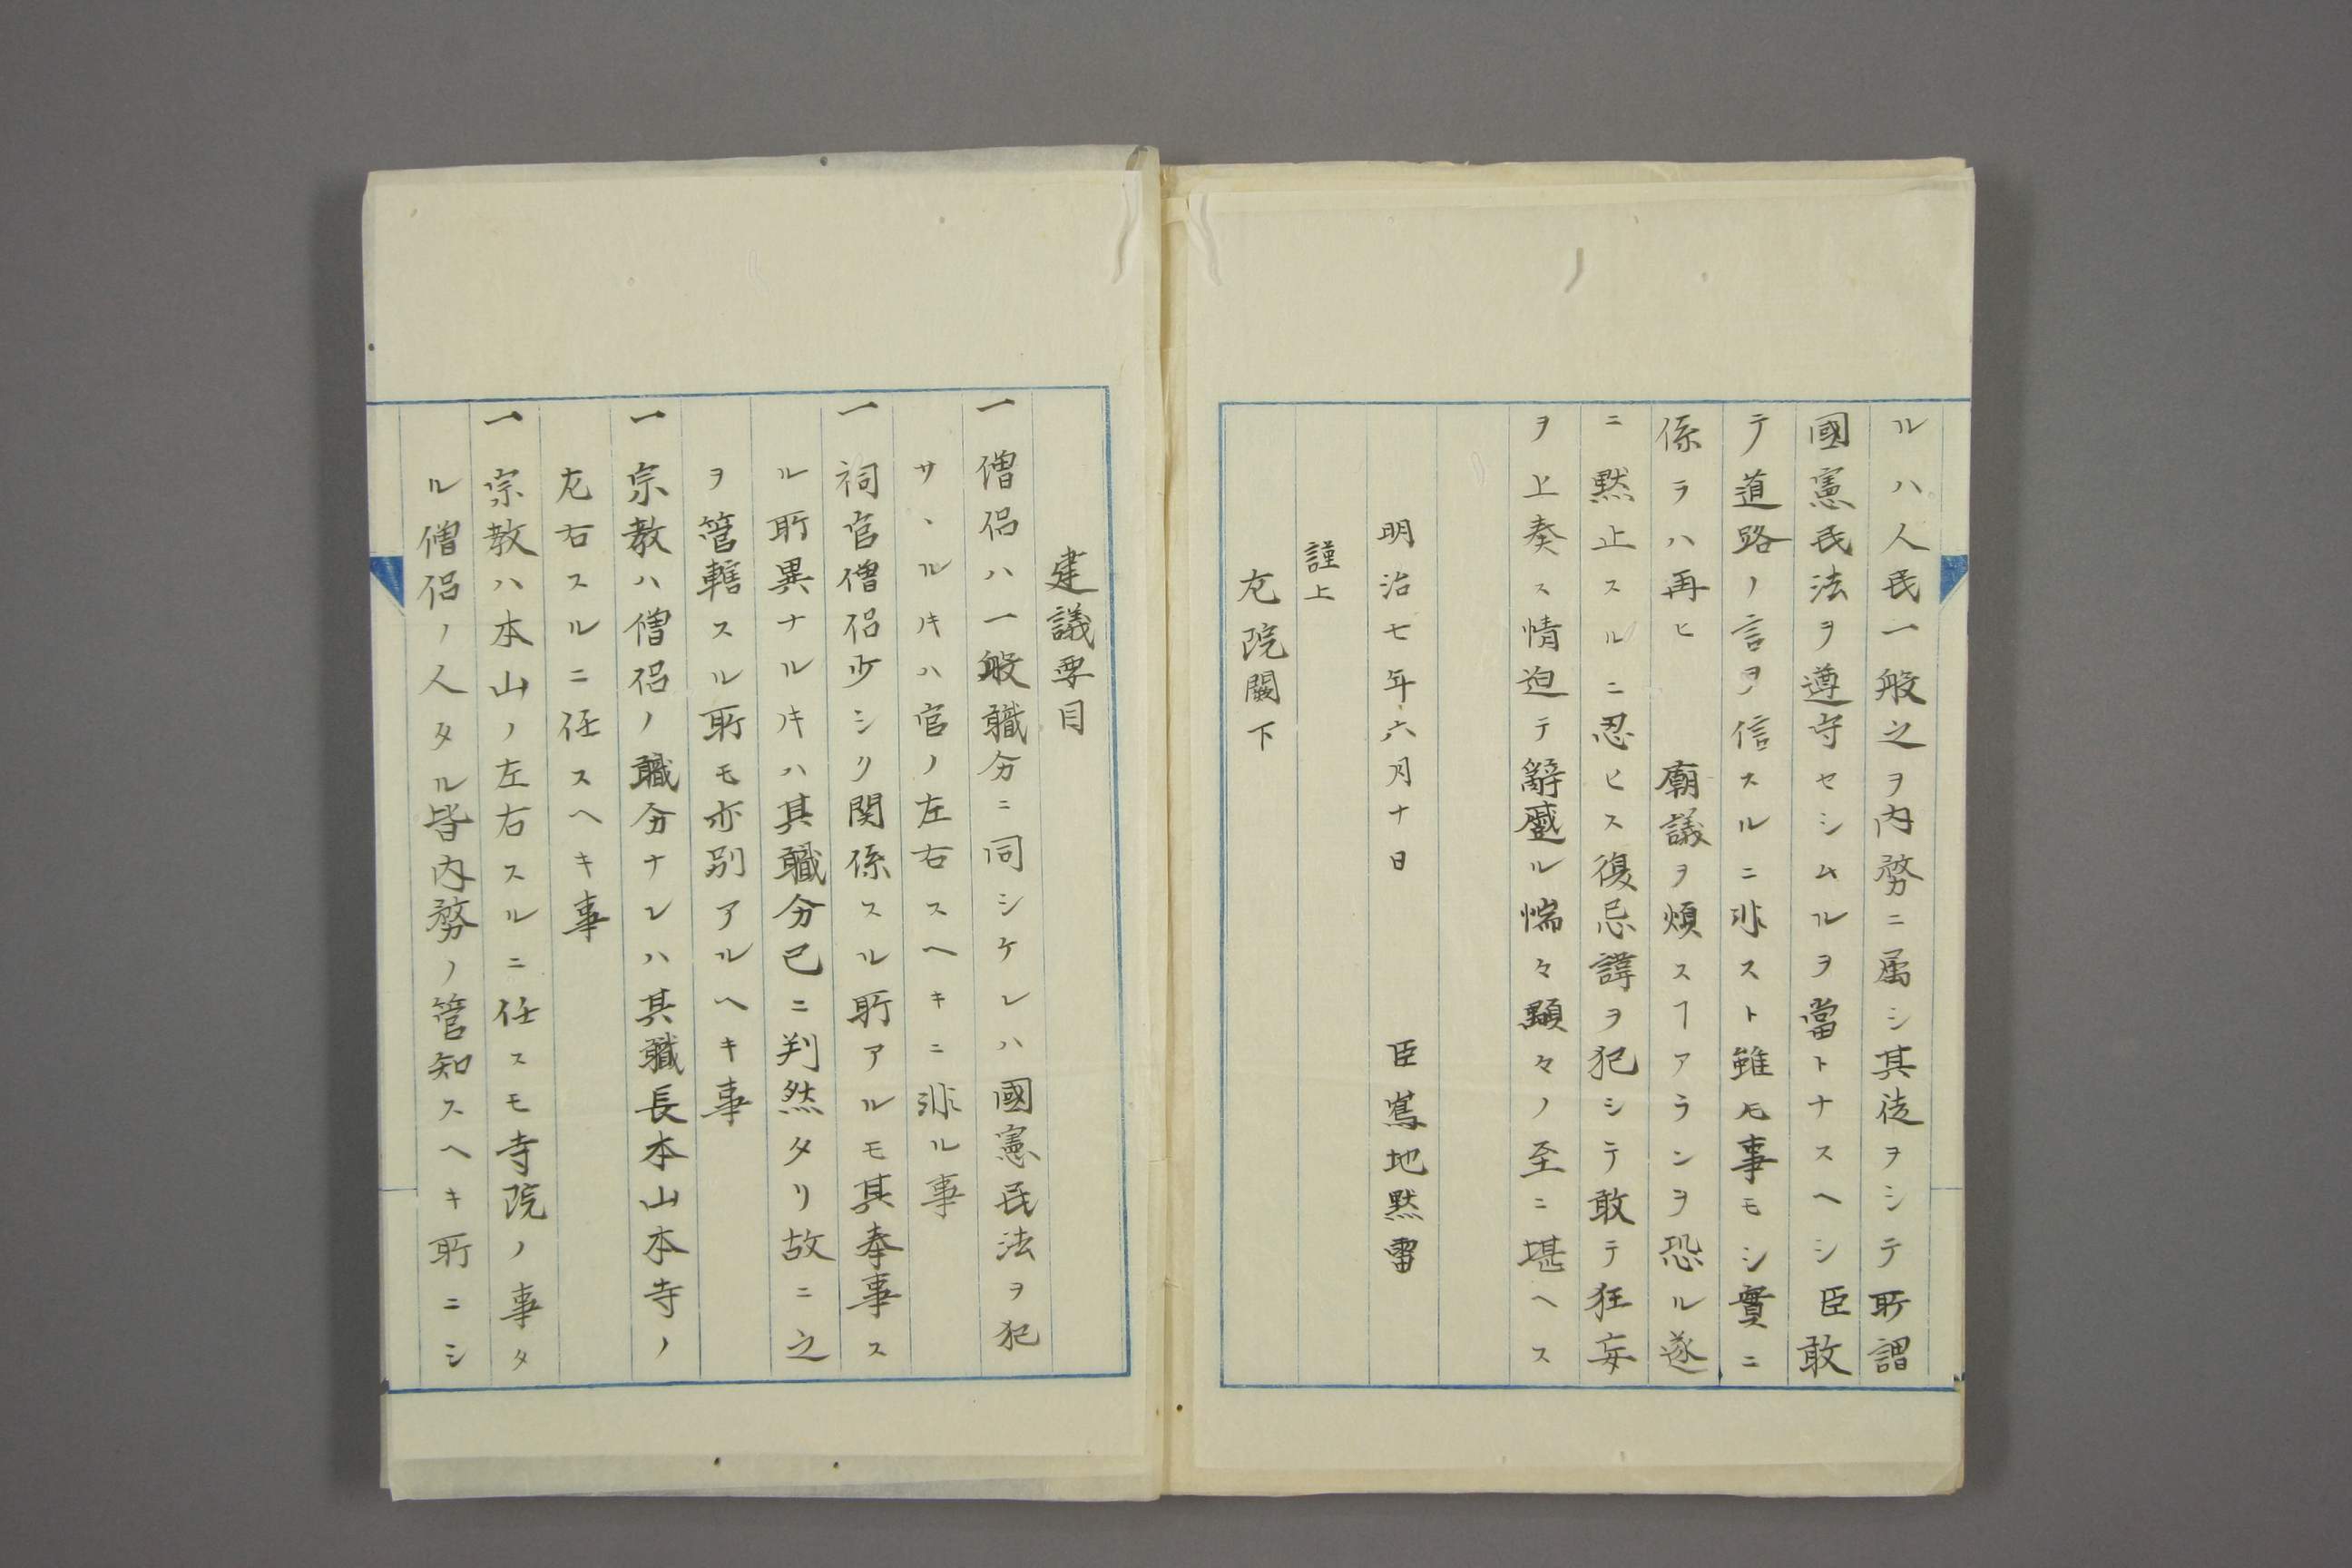 ルハ人民一般之ヲ内務ニ属シ其徒ヲシテ所謂
國憲民法ヲ遵守セシムルヲ當トナスヘシ臣敢
テ道路ノ言ヲ信スルニ非スト雖モ事モシ實ニ
係ラハ再ヒ 廟議ヲ煩スヿアランヲ恐ル遂
ニ黙止スルニ忍ヒス復忌諱ヲ犯シテ敢テ狂妄
ヲ上奏ス情迫テ辭蹙ル惴々顕々ノ至ニ堪ヘス
明治七年六月十日 臣嶌地黙雷
謹上
左院閣下
建議要目
一僧侶ハ一般職分ニ同シケレハ國憲民法ヲ犯
サヽルノキハ官ノ左右スヘキニ非ル事
一祠官僧侶少シリ関係スル所アルモ其奉事ス
ル所異ナルノキハ其職分已ニ判然タリ故ニ之
ヲ管轄スル所モ亦別アルヘキ事
一宗教ハ僧侶ノ職分ナレハ其職長本山本寺ノ
左右スルニ任スヘキ事
一宗教ハ本山ノ左右スルニ任スモ寺院ノ事タ
ル僧侶ノ人タル皆内務ノ管知スヘキ所ニシ